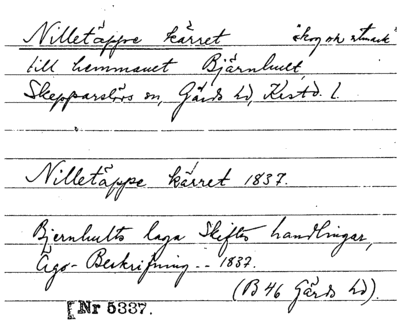 Nilletäppe kärret "skog och utmark"
till hemmanet Bjärnhult,
Skepparslövs sn, Gärds hd, Krstd. l.
Nilletäppe kärret 1837.
Bjernhults laga Skiftes handlingar,
Ägo-Beskrifning -- 1837.
(B 46 Gärds hd).
[Nr 5337.